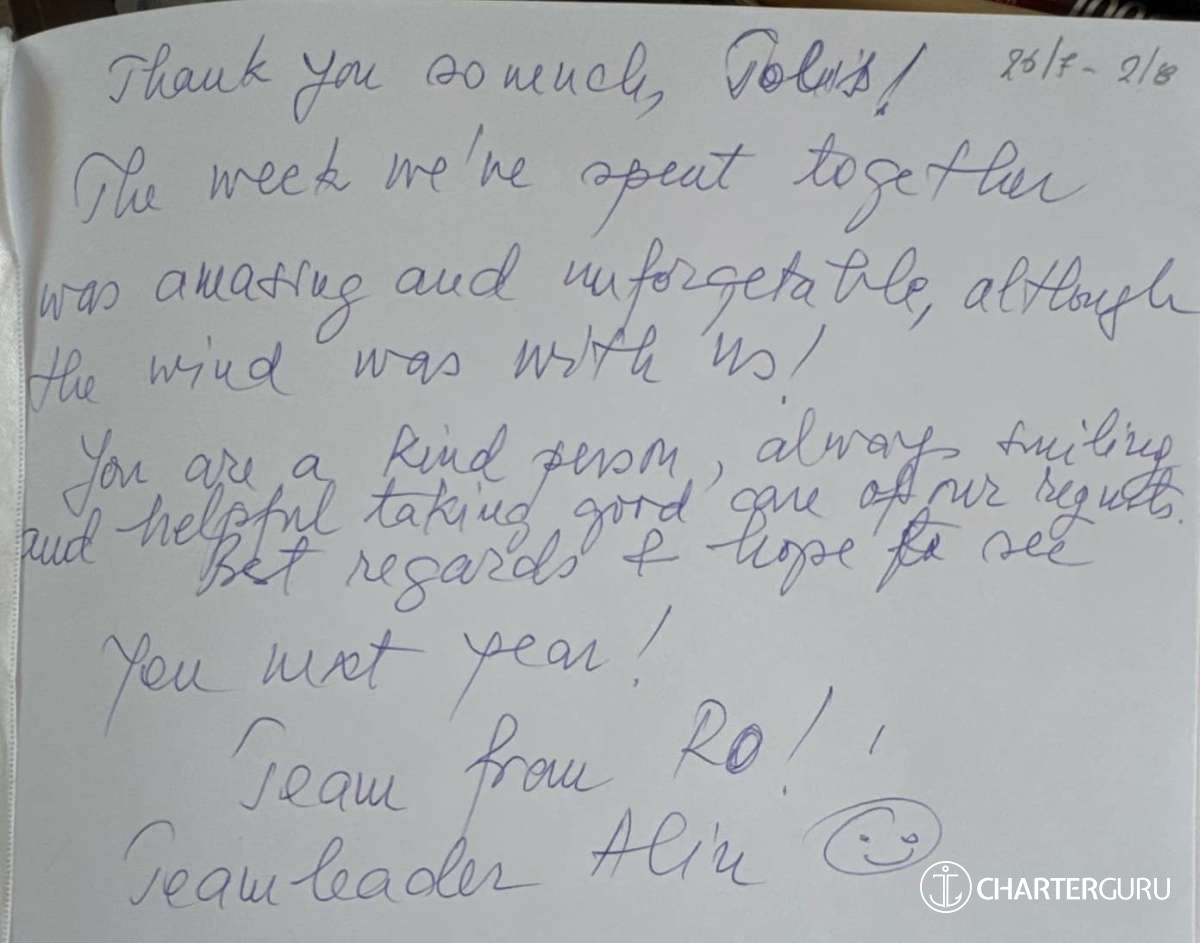 Thank you so much, Tolis! 26/7 - 2/8
The week we've spent together
was amazing and unforgetable, although
the wind was with us!
You are a kind person, always smiling
and helpful taking good care of our requsts.
Best regards & hope to see
you next year!
Team from RO!
Teamleader Alin
CHARTERGURU